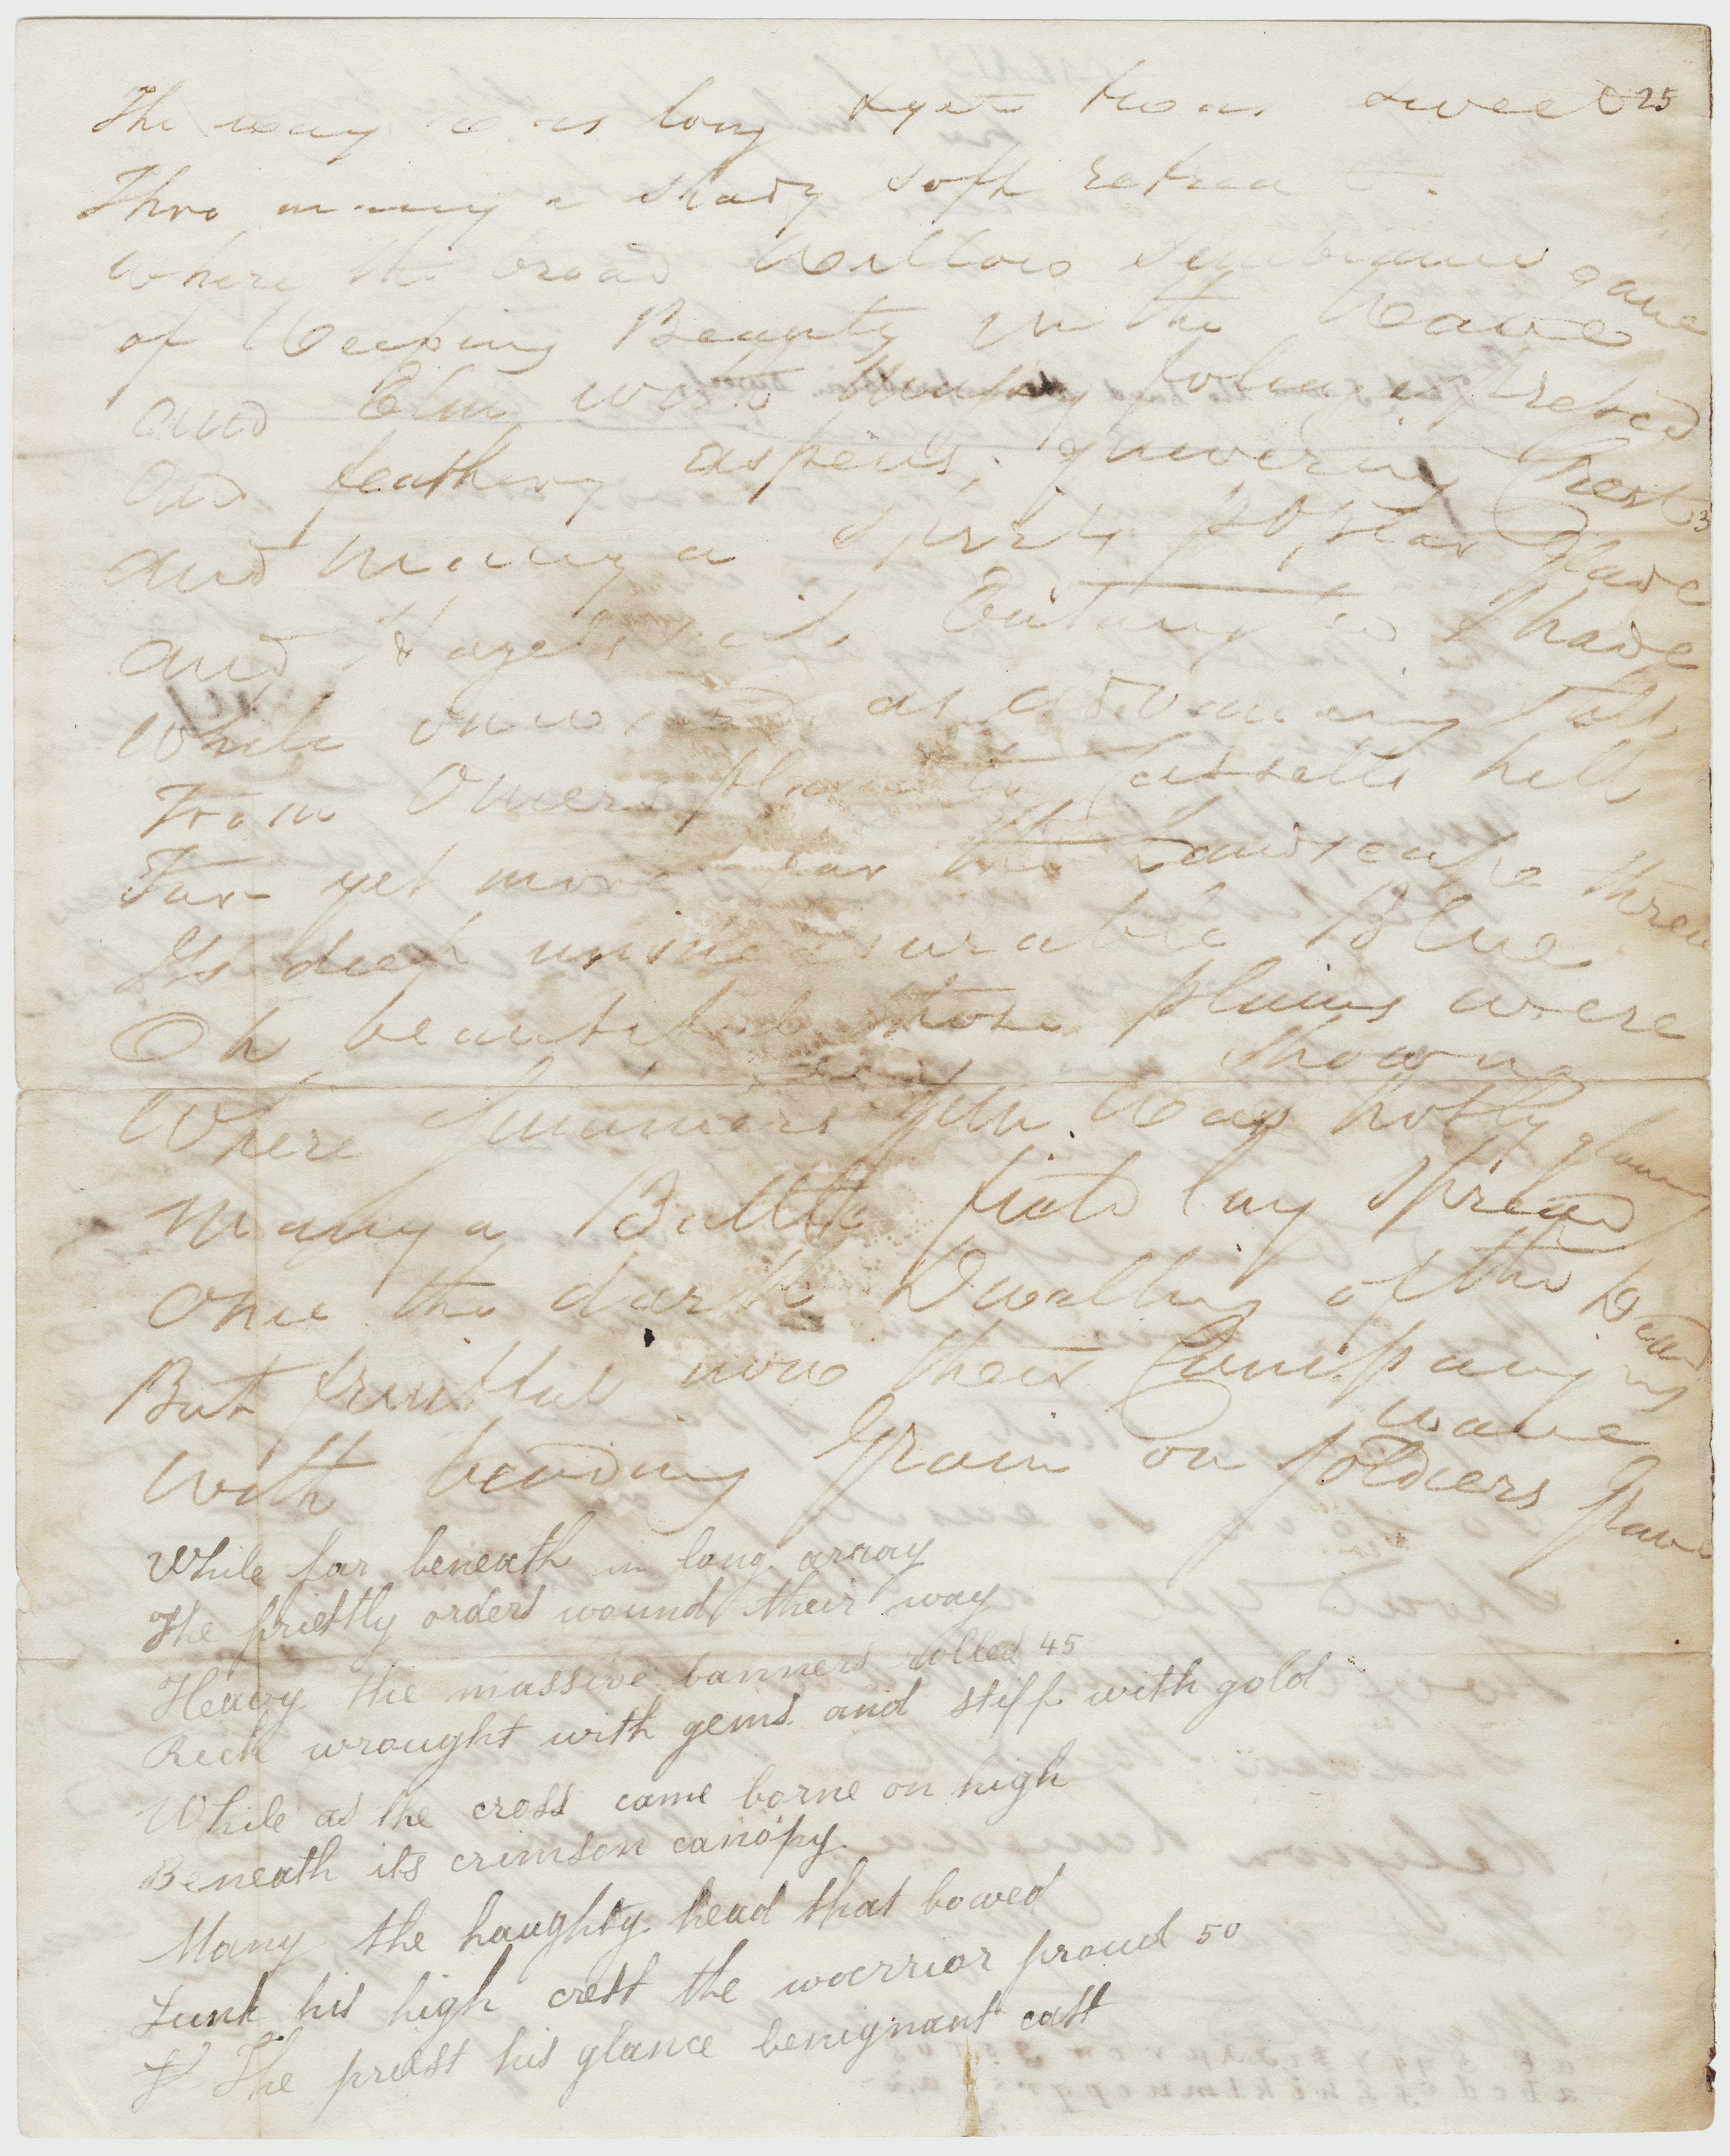 The way was long & yet twas sweet 25
Thro many a shady soft retreat
Where the broad Willows semblance gave
of Weeping Beauty in the Wave
and Elm with heavy foliage prest
and feathery aspens, quivering Crest 3
and many a spiry poplar glade
and Hazels with to shade
While onward as advancing still
From Omers plain to Cassells hill
Far yet more far the Landscape threw
Its deep unmeasurable Blue
Oh beautiful those plains were
shown
Where Summers Sun Was hotly glowing
Many a Battle field lay spread
Once the dark Dwelling of the Dead
But fruitful now their Company
wave
With bending Grain on soldiers Grave
While far beneath in long array
The priestly orders wound their way
Heavy the massive banners rolled 45
Rich wrought with gems and stiff with gold
While as the cross came borne on high
Beneath its crimson canopy
Many the haughty head that bowed
Sunk his high crest the warrior proud 50
The priest his glance benignant cast